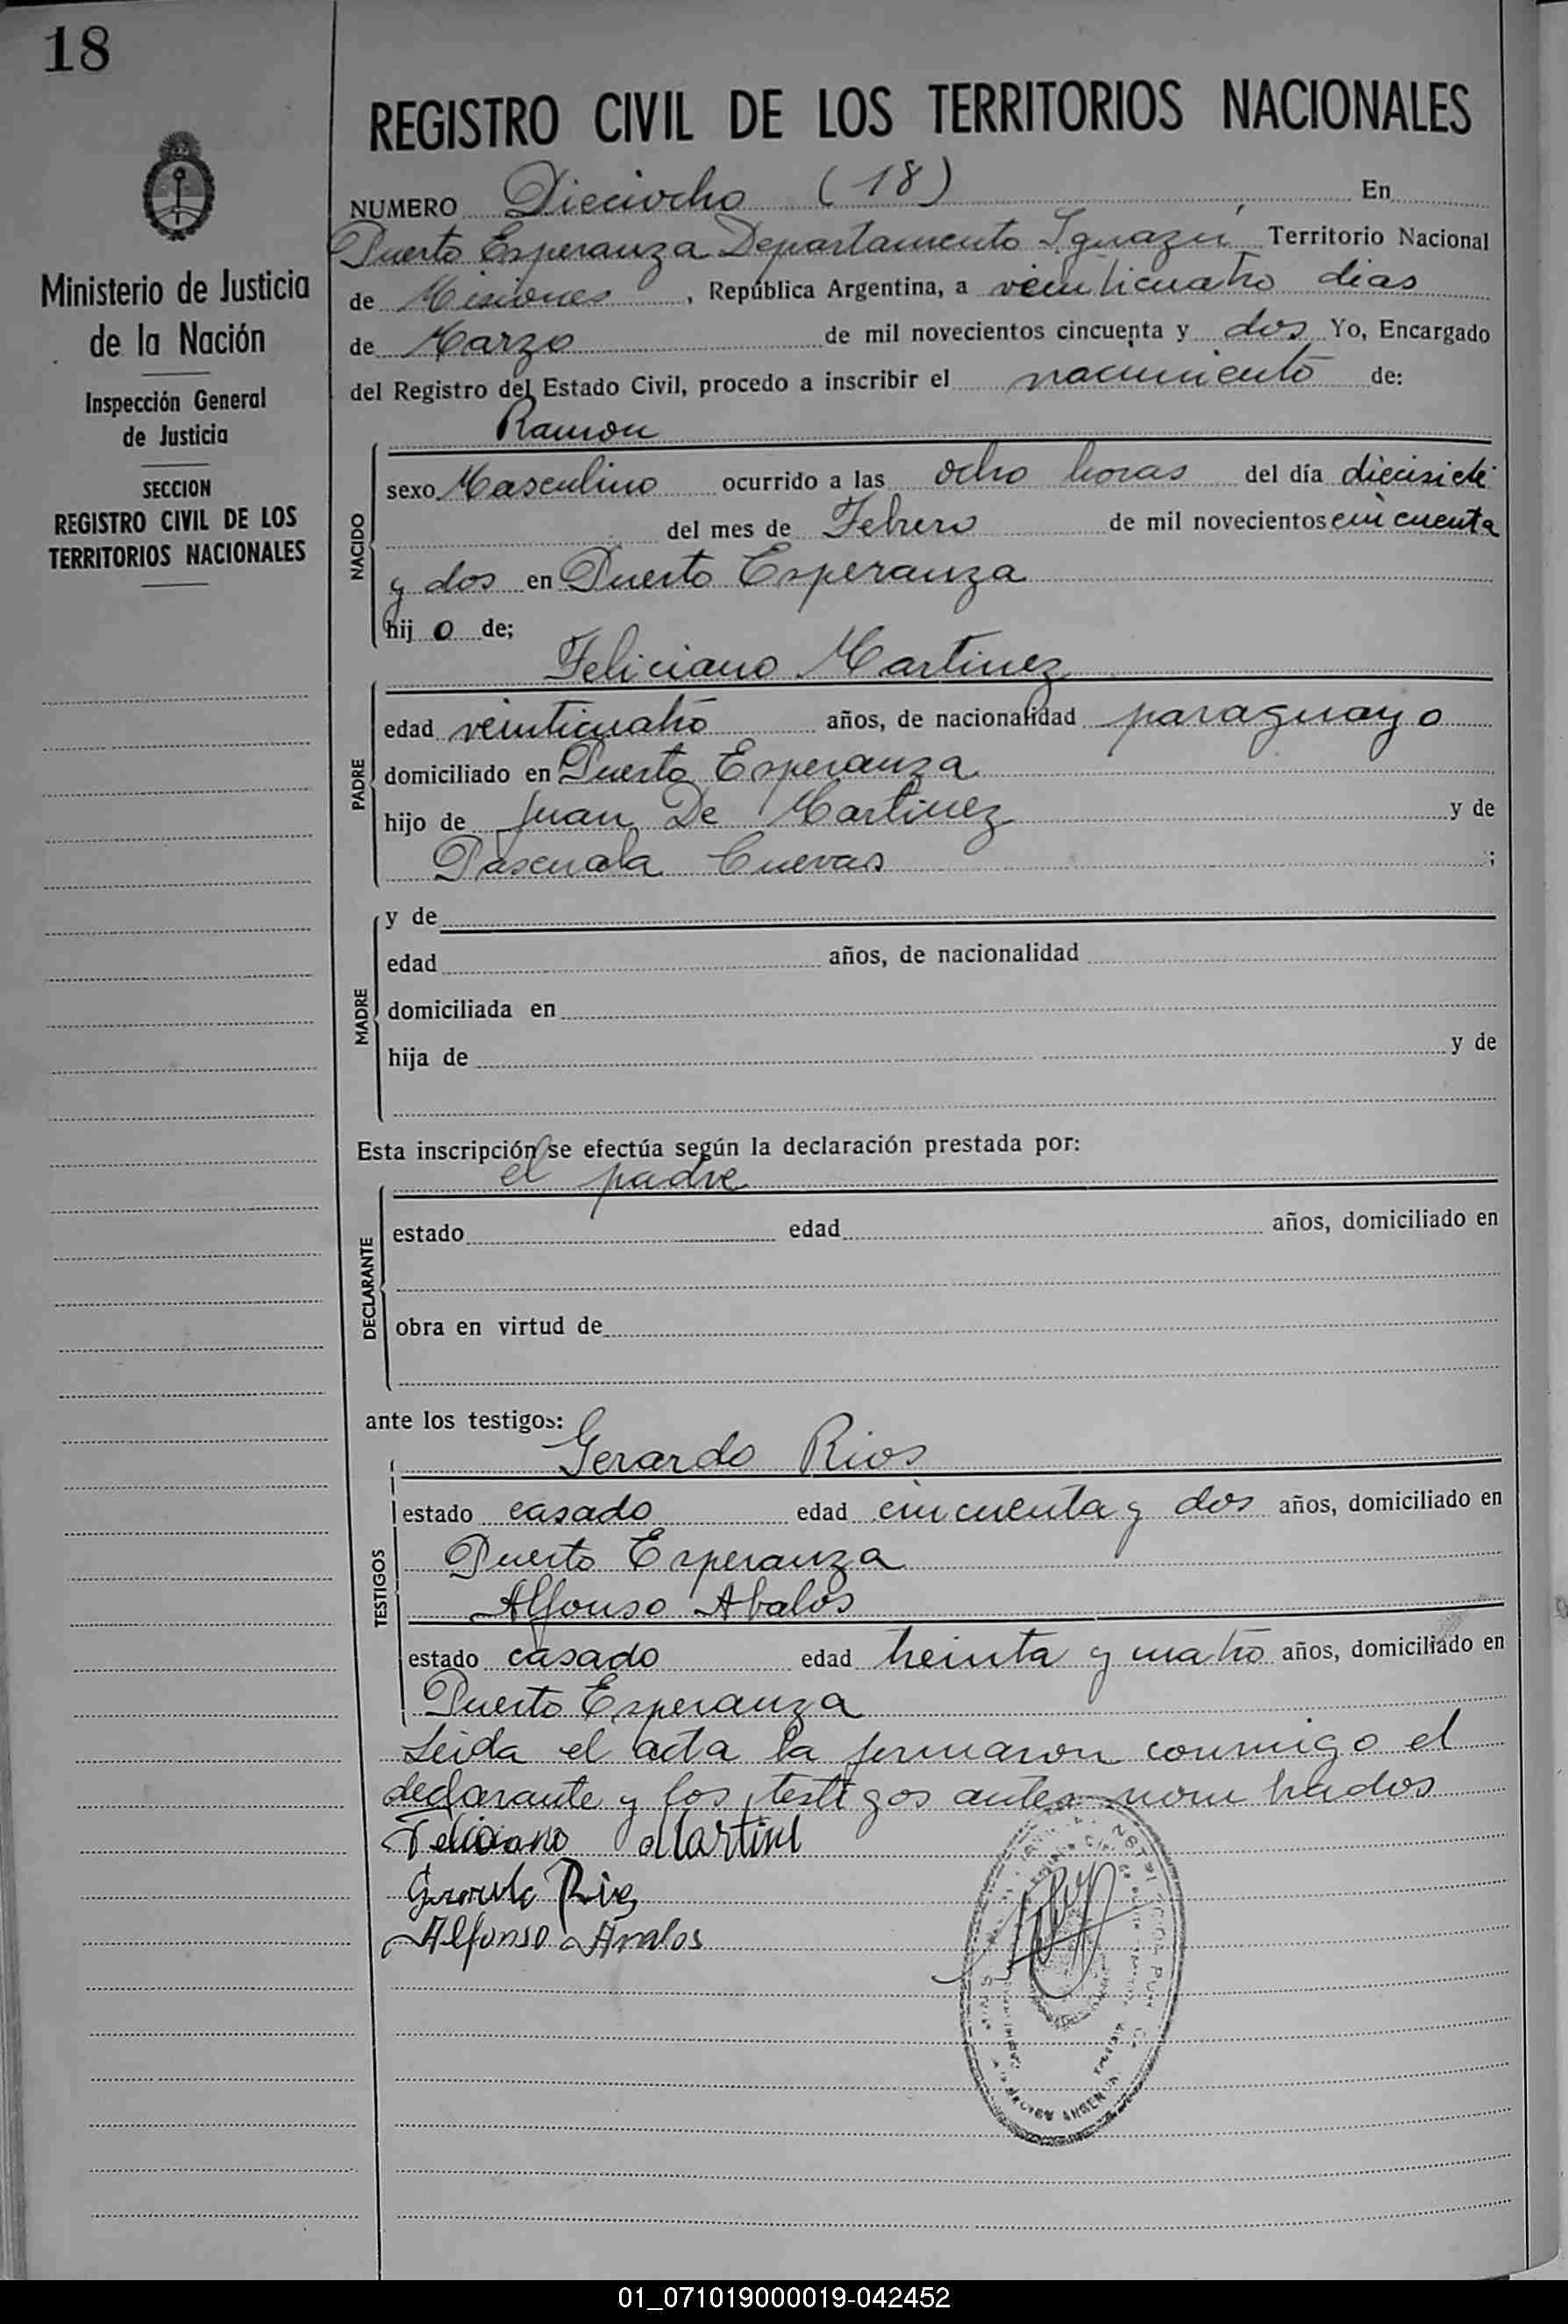 18
Ministerio de Justicia
de la Nación
Inspección General
de Justicia
SECCION
REGISTRO CIVIL DE LOS
TERRITORIOS NACIONALES
REGISTRO CIVIL DE LOS TERRITORIOS NACIONALES
NUMERO Dieciocho (18) En
Puerto Esperanza Departamento Iguazú Territorio Nacional
de Misiones, República Argentina, a veinticuatro dias
de Marzo de mil novecientos cincuenta y dos Yo, Encargado
del Registro del Estado Civil, procedo a inscribir el nacimiento de:
NACIDO
Ramon
sexo Masculino ocurrido a las ocho horas del día diecisiete
del mes de Febrero de mil novecientos cincuenta
y dos en Puerto Esperanza
hijo de;
PADRE
Feliciano Martinez
edad veinticuatro años, de nacionalidad paraguayo
domiciliado en Puerto Esperanza
hijo de Juan De Martinez y de
Pascuala Cuevas ;
MADRE
y de
edad años, de nacionalidad
domiciliada en
hija de y de
Esta inscripción se efectúa según la declaración prestada por:
DECLARANTE
el padre
estado edad años, domiciliado en
obra en virtud de
ante los testigos:
TESTIGOS
Gerardo Rios
estado casado edad cincuenta y dos años, domiciliado en
Puerto Esperanza
Alfonso Abalos
estado casado edad treinta y cuatro años, domiciliado en
Puerto Esperanza
Leida el acta la firmaron conmigo el
declarante y los testigos antes nombrados
Feliciano Martine
Gerardo Rios
Alfonso Avalos
01_071019000019-042452